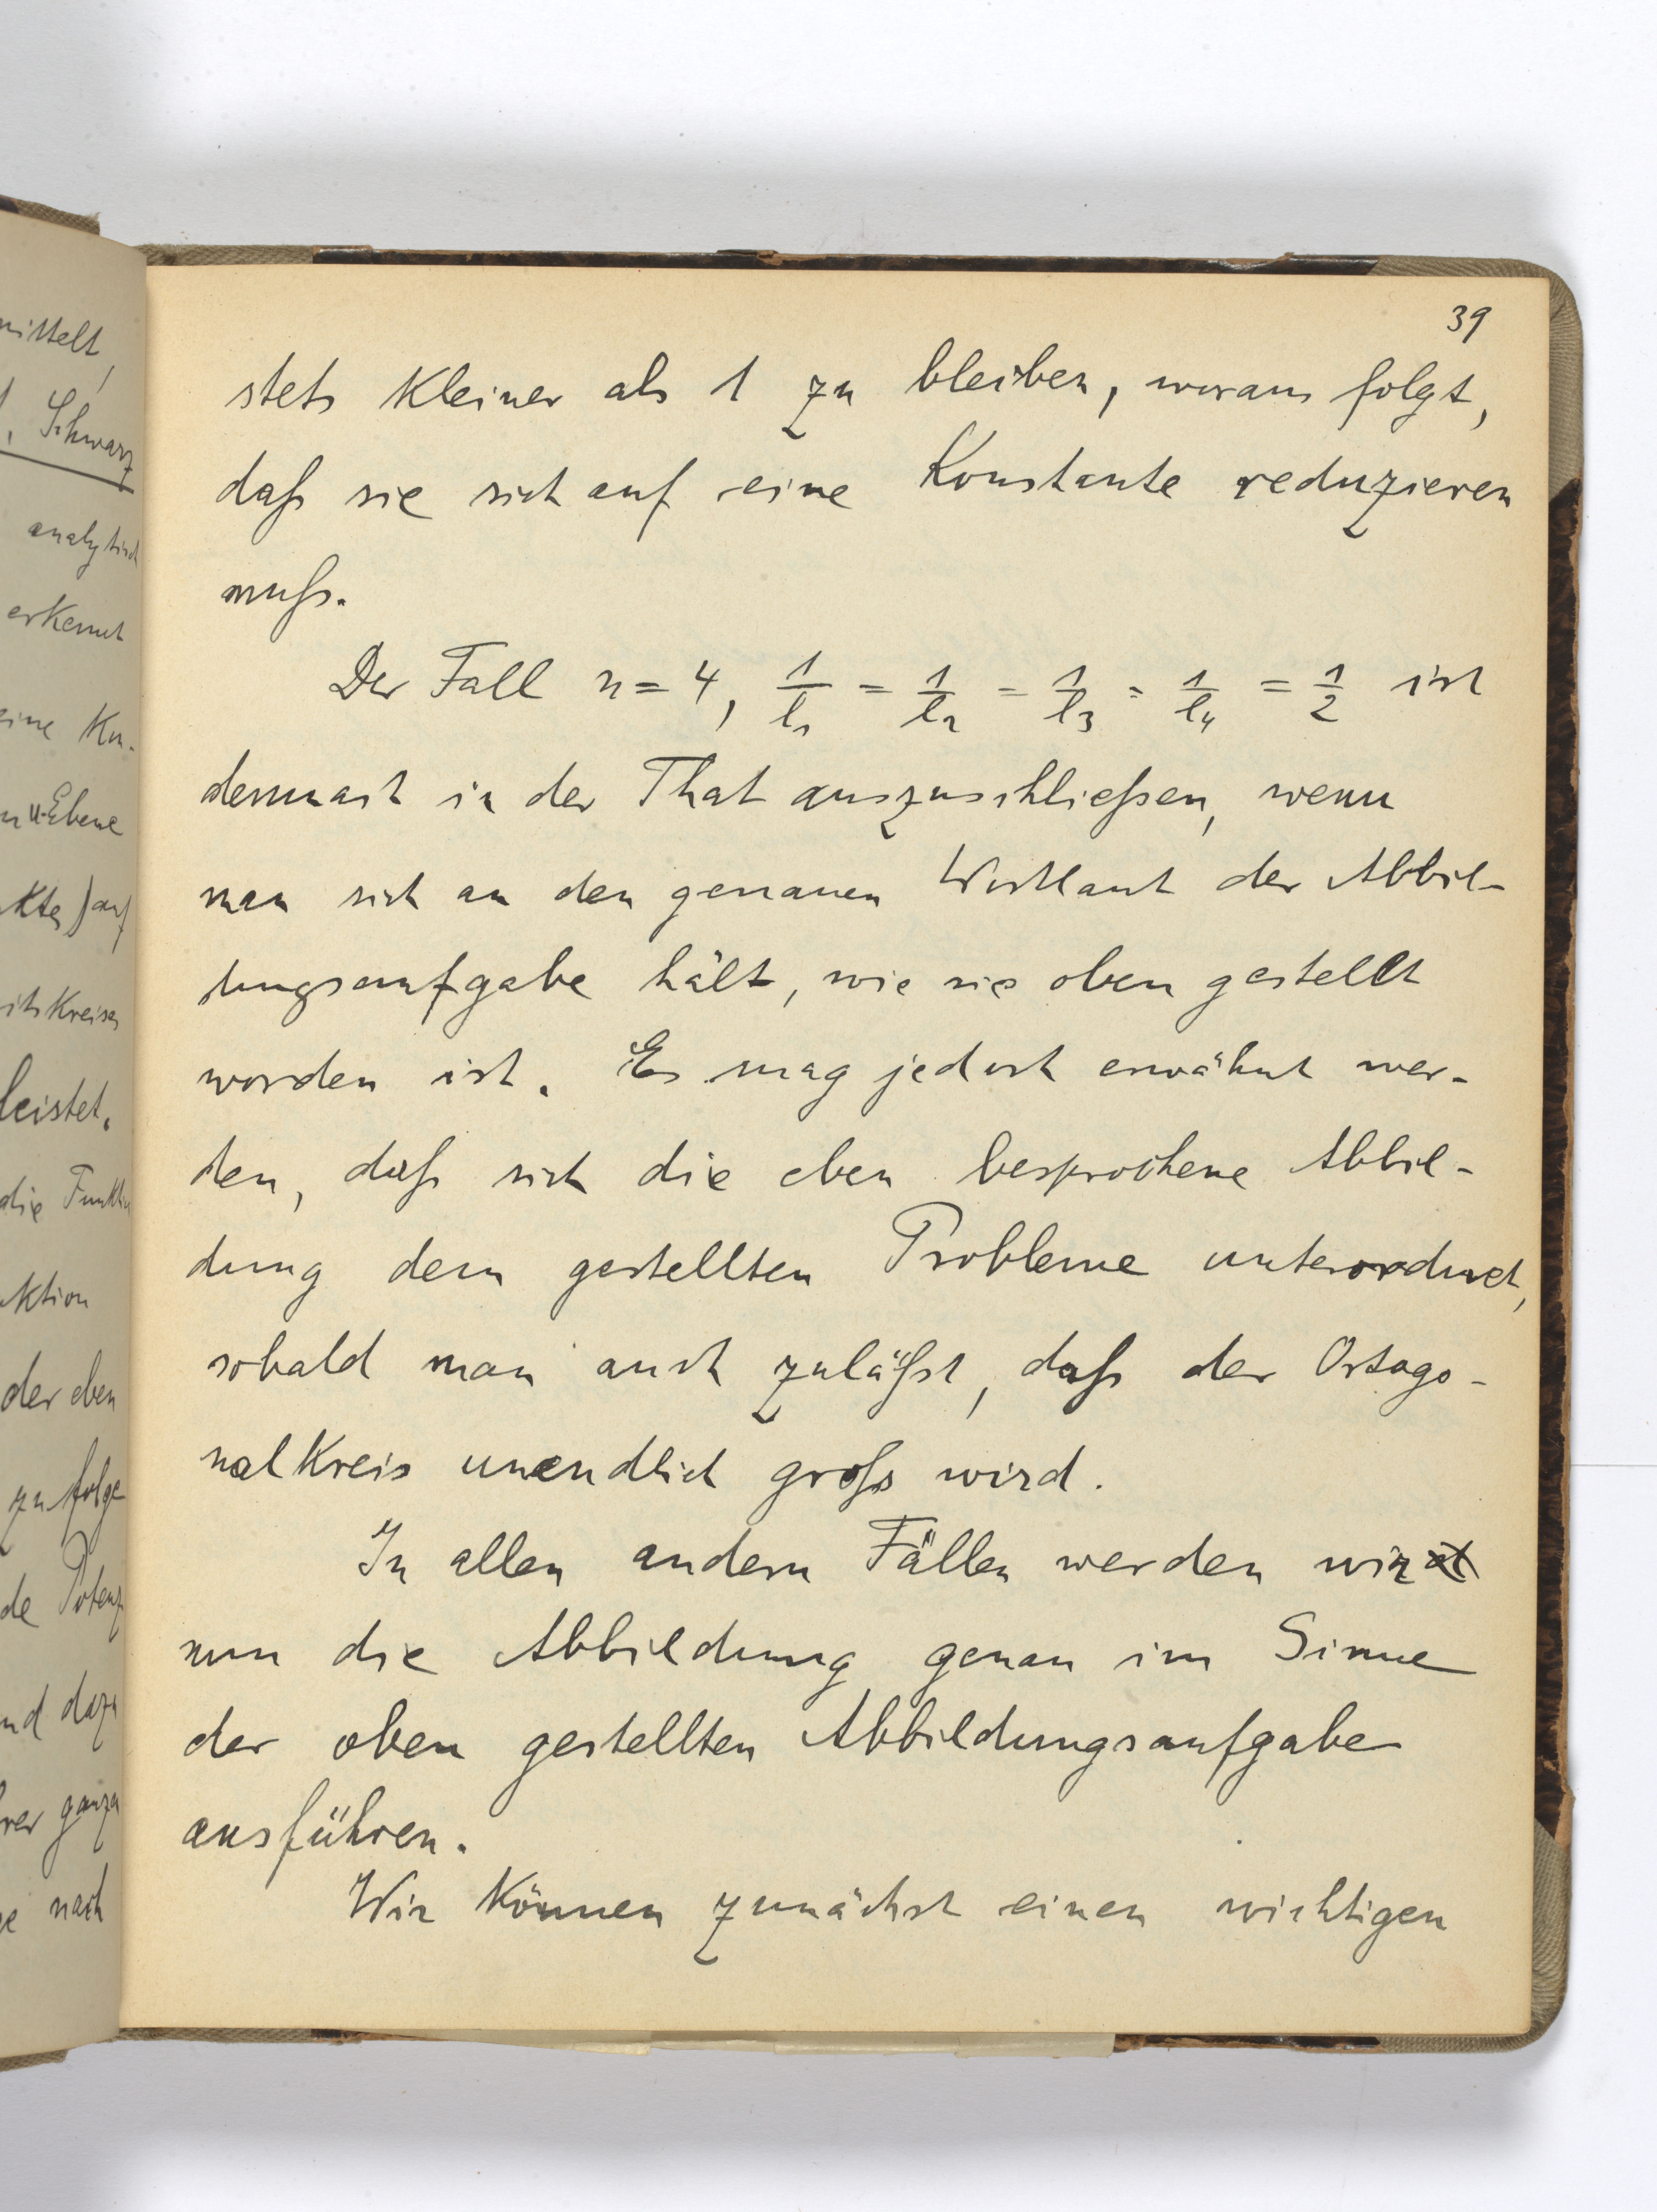 39
stets kleiner als 1 zu bleiben, woraus folgt,
daß sie sich auf eine Konstante reduzieren
muß.
Der Fall n = 4, 1/l₁ = 1/l₂ = 1/l₃ = 1/l₄ = 1/2 ist
demnach in der That auszuschließen, wenn
man sich an den genauen Wortlaut der Abbil-
dungsaufgabe hält, wie sie oben gestellt
worden ist. Es mag jedoch erwähnt wer-
den, daß sich die eben besprochene Abbil-
dung dem gestellten Probleme unterordnet,
sobald man auch zuläßt, daß der Ortogo-
nalkreis unendlich groß wird.
In allen andern Fällen werden wir
nun die Abbildung genau im Sinne
der oben gestellten Abbildungsaufgabe
ausführen.
Wir können zunächst einen wichtigen
mittelt,
Schwarz
analytisch
erkennt
eine Ku-
u-Ebene
kte) auf
itskreises
leistet.
die Funktion
ktion
der eben
zu folge
de Potenz
nd dazu
rer ganzen
ge nach